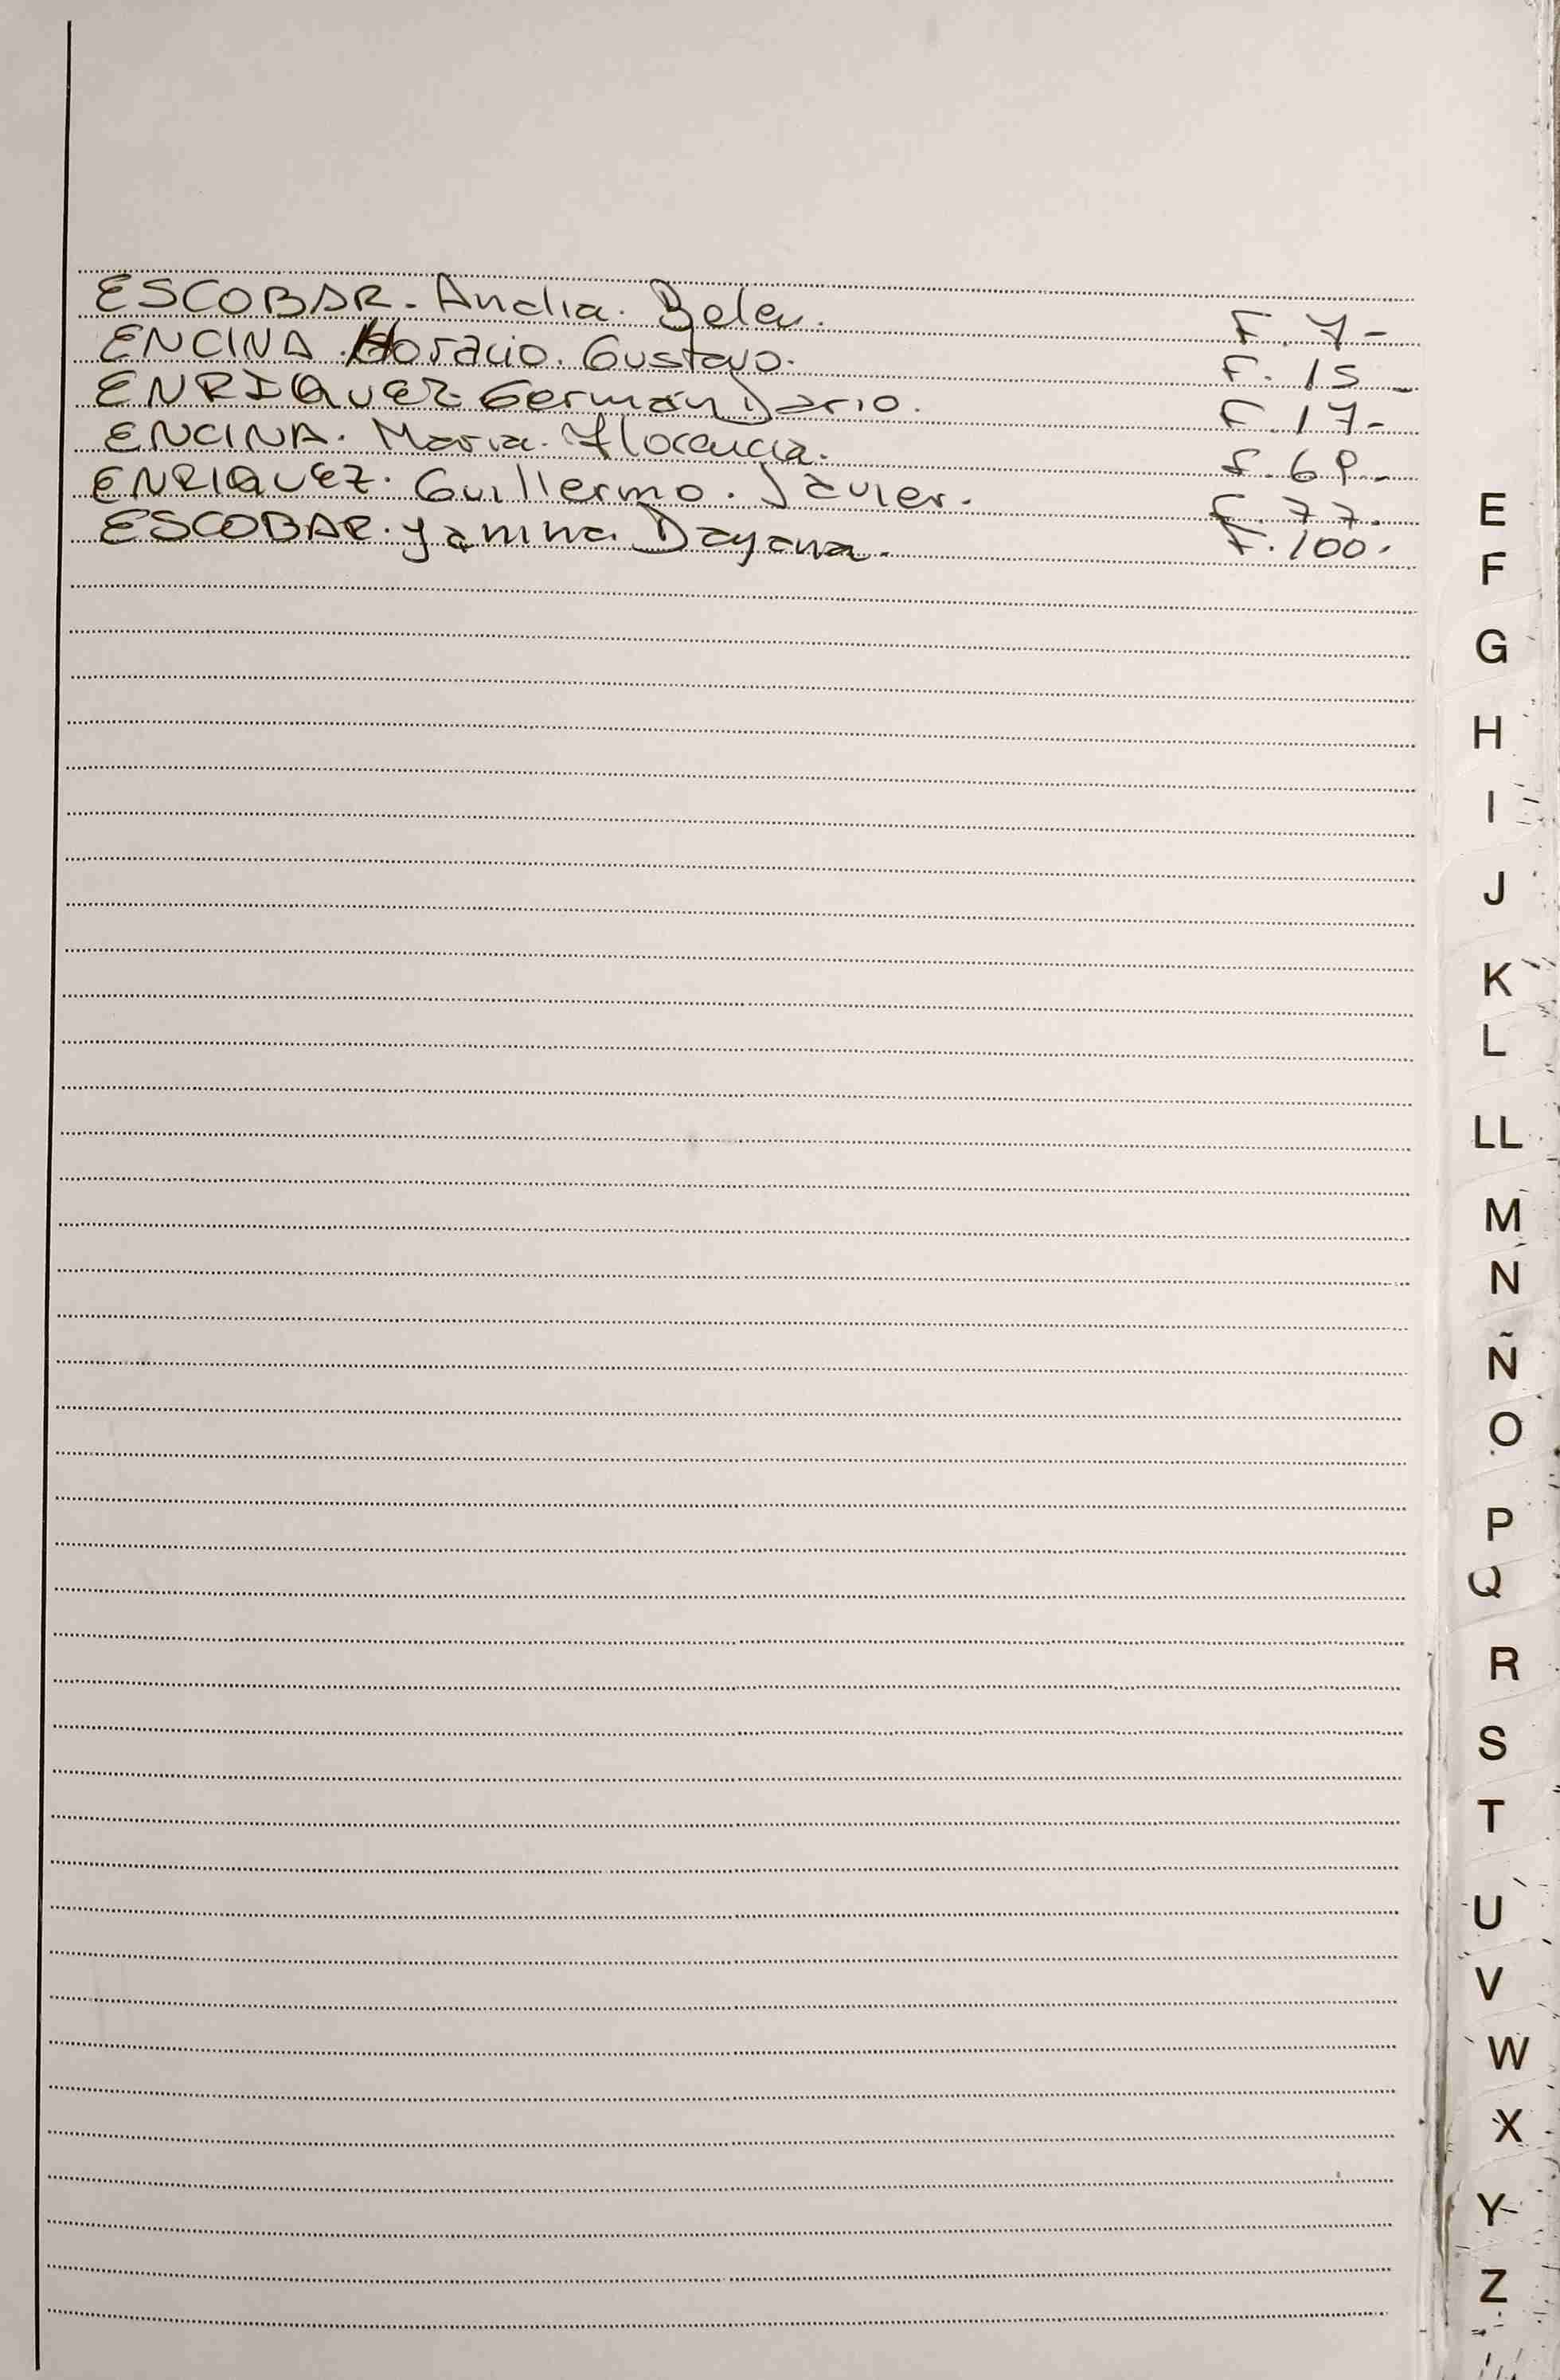 ESCOBAR. Analia. Belen. F. 7-
ENCINA. Horacio. Gustavo. F. 15-
ENRIQUEZ. German Dario. F. 17-
ENCINA. Maria. Florencia. F. 69-
ENRIQUEZ. Guillermo. Javier. F. 77.
ESCOBAR. Yanina. Dayana. F. 100.
E
F
G
H
I
J
K
L
LL
M
N
Ñ
O
P
Q
R
S
T
U
V
W
X
Y
Z